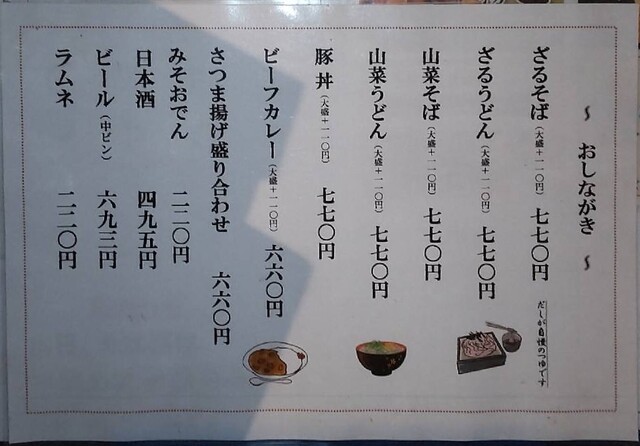 ～ おしながき ～
ざるそば（大盛＋一一〇円） 七七〇円
だしが自慢のつゆです
ざるうどん（大盛＋一一〇円） 七七〇円
山菜そば（大盛＋一一〇円） 七七〇円
山菜うどん（大盛＋一一〇円） 七七〇円
豚丼（大盛＋一一〇円） 七七〇円
ビーフカレー（大盛＋一一〇円） 六六〇円
さつま揚げ盛り合わせ 六六〇円
みそおでん 二二〇円
日本酒 四九五円
ビール（中ビン） 六九三円
ラムネ 二二〇円